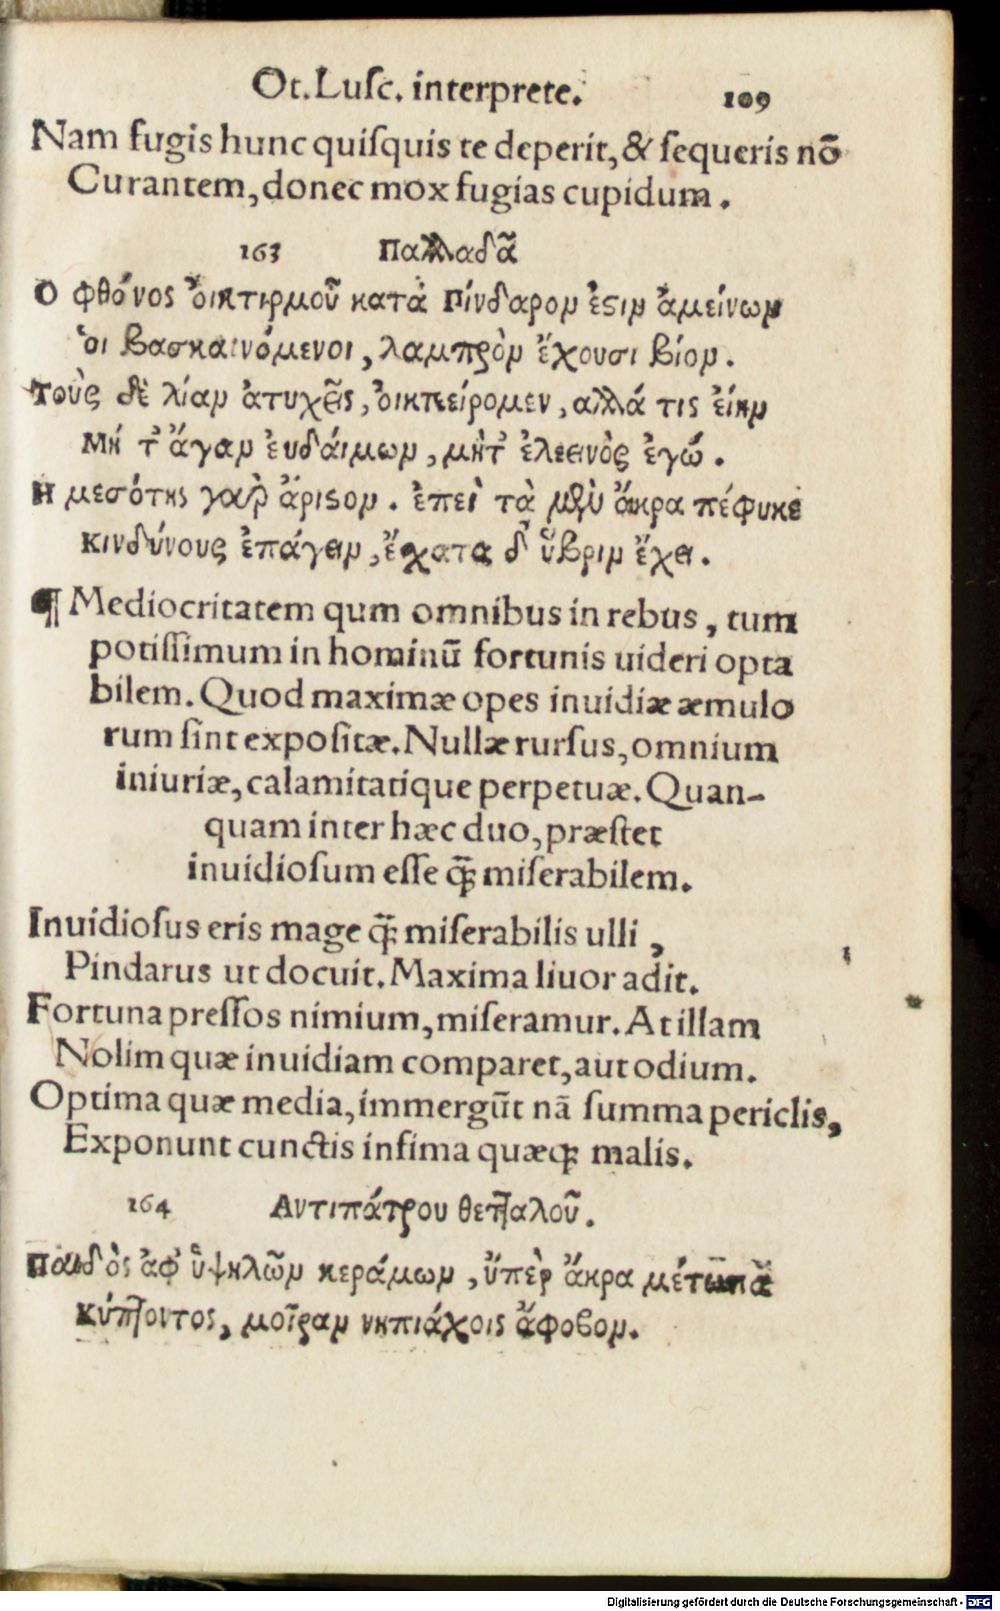 Ot. Lusc. interprete. 109
Nam fugis hunc quisquis te deperit, & sequeris nō
Curantem, donec mox fugias cupidum.
163 Παλλαδᾶ
Ὁ φθόνος ὀικτιρμοῦ κατὰ Πίνδαρον ἐστὶν ἀμείνων
ὁι βασκαινόμενοι, λαμπρὸν ἔχουσι βίον.
Τοὺς δὲ λίαν ἀτυχεῖς, ὀικτείρομεν, ἀλλά τις εἴην
Μή τ' ἄγαν ἐυδάιμων, μήτ' ἐλεεινὸς ἐγώ.
Ἡ μεσότης γαρ ἄριστον. ἐπεὶ τὰ μὲν ἄκρα πέφυκε
κινδύνους ἐπάγειν, ἔσχατα δ' ὕβριν ἔχει.
¶ Mediocritatem qum omnibus in rebus, tum
potissimum in hominū fortunis uideri opta
bilem. Quod maximæ opes inuidiæ æmulo
rum sint expositæ. Nullæ rursus, omnium
iniuriæ, calamitatique perpetuæ. Quan-
quam inter hæc duo, præstet
inuidiosum esse q̄ȝ miserabilem.
Inuidiosus eris mage q̄ȝ miserabilis ulli,
Pindarus ut docuit. Maxima liuor adit.
Fortuna pressos nimium, miseramur. At illam
Nolim quæ inuidiam comparet, aut odium.
Optima quæ media, immergūt nā summa periclis,
Exponunt cunctis infima quæqȝ malis.
164 Αντιπάτρου θετταλοῦ.
Παιδὸς ἀφ' ὑψηλῶν κεράμων, ὕπερ ἄκρα μέτωπα
κύπτοντος, μοῖραν νηπιάχοις ἄφοβον.
Digitalisierung gefördert durch die Deutsche Forschungsgemeinschaft - DFG